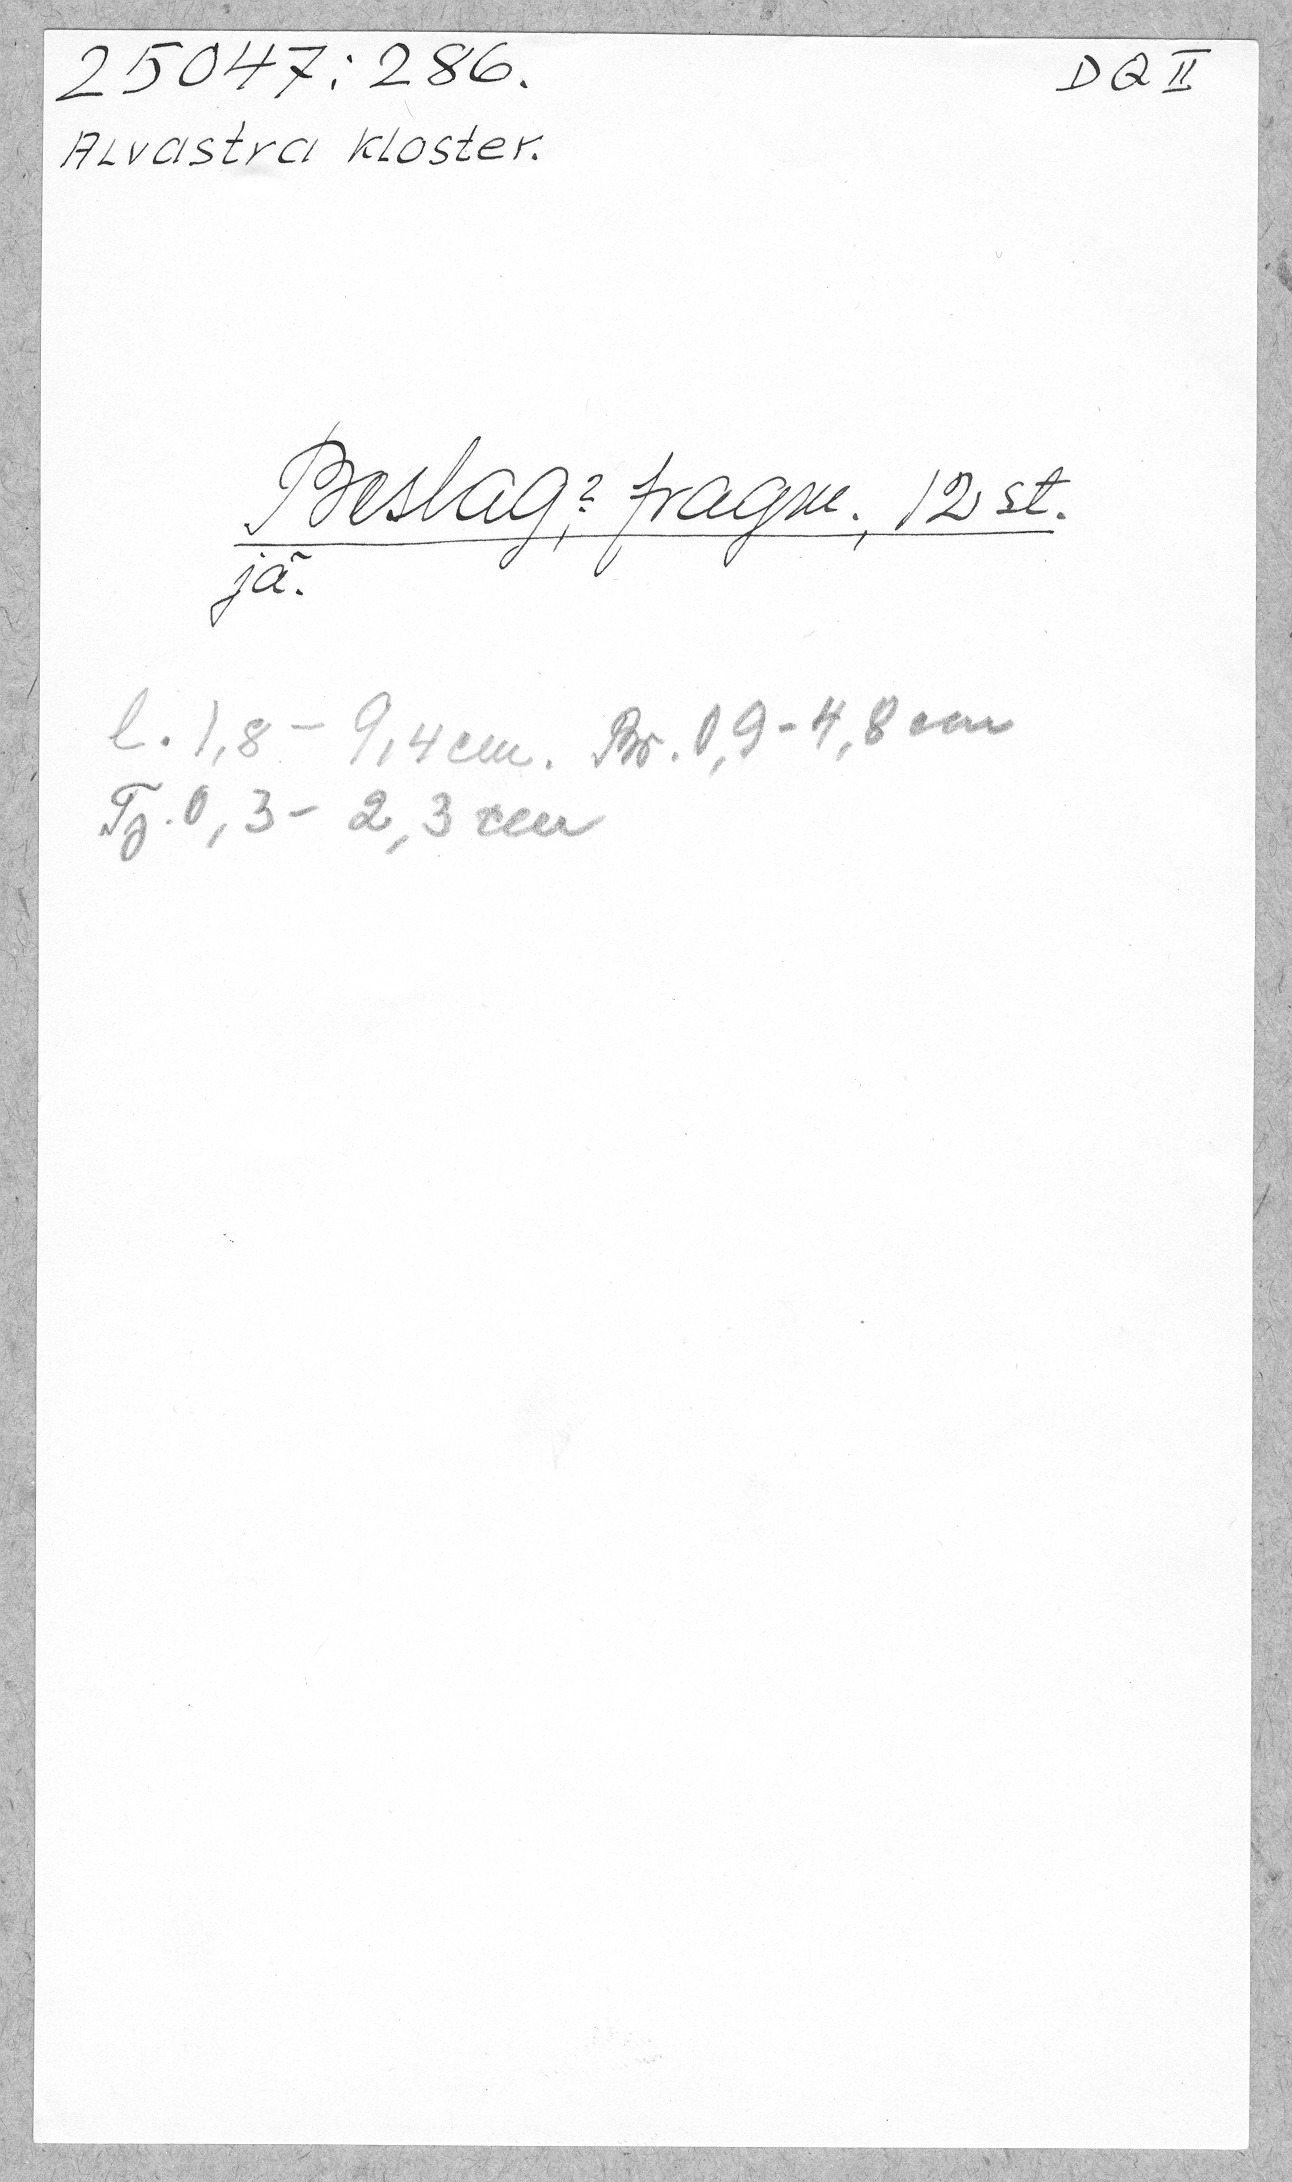 25047:286.
DQ II
Alvastra kloster.
Beslag,? fragm., 12 st.
jä.
l. 1,8 - 9,4 cm. Br. 0,9 - 4,8 cm
Tj. 0,3 - 2,3 cm